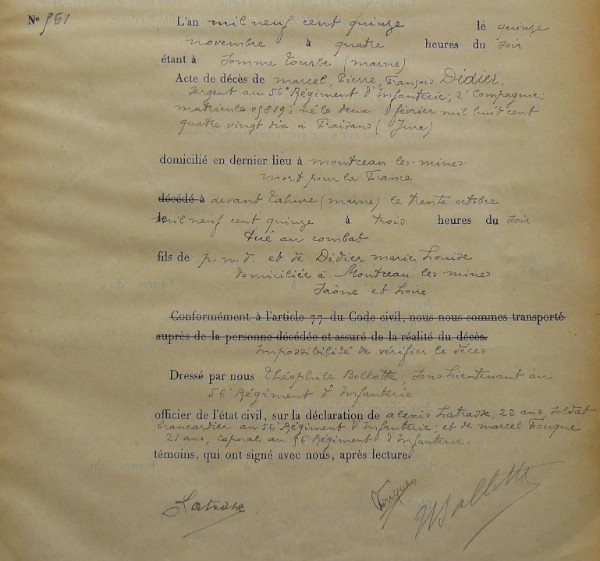 N° 751
L'an mil neuf cent quinze le quinze
novembre à quatre heures du soir
étant à Somme Tourbe (marne)
Acte de décès de marcel, Pierre, François Didier
Sergent au 56e Régiment d'Infanterie; 2e Compagnie;
matricule 0/819; né le deux février mil huit cent
quatre vingt dix à Fraisans (Jura)
domicilié en dernier lieu à montceau les mines
mort pour la France
décédé à devant Tahure (marne) le trente octobre
le mil neuf cent quinze à trois heures du soir
tué au combat
fils de p.n.d. et de Didier marie Louise
domiciliée à Montceau les mines
Saône et Loire
Conformément à l'article 77 du Code civil, nous nous sommes transporté
auprès de la personne décédée et assuré de la réalité du décès.
Impossibilité de vérifier le décès
Dressé par nous Théophile Bollotte, Sous Lieutenant au
56e Régiment d'Infanterie
officier de l'état civil, sur la déclaration de alexis Latrasse, 22 ans, Soldat
brancardier au 56e Régiment d'Infanterie; et de marcel Fouque
21 ans, caporal au 56e Régiment d'Infanterie.
témoins, qui ont signé avec nous, après lecture.
Latrasse